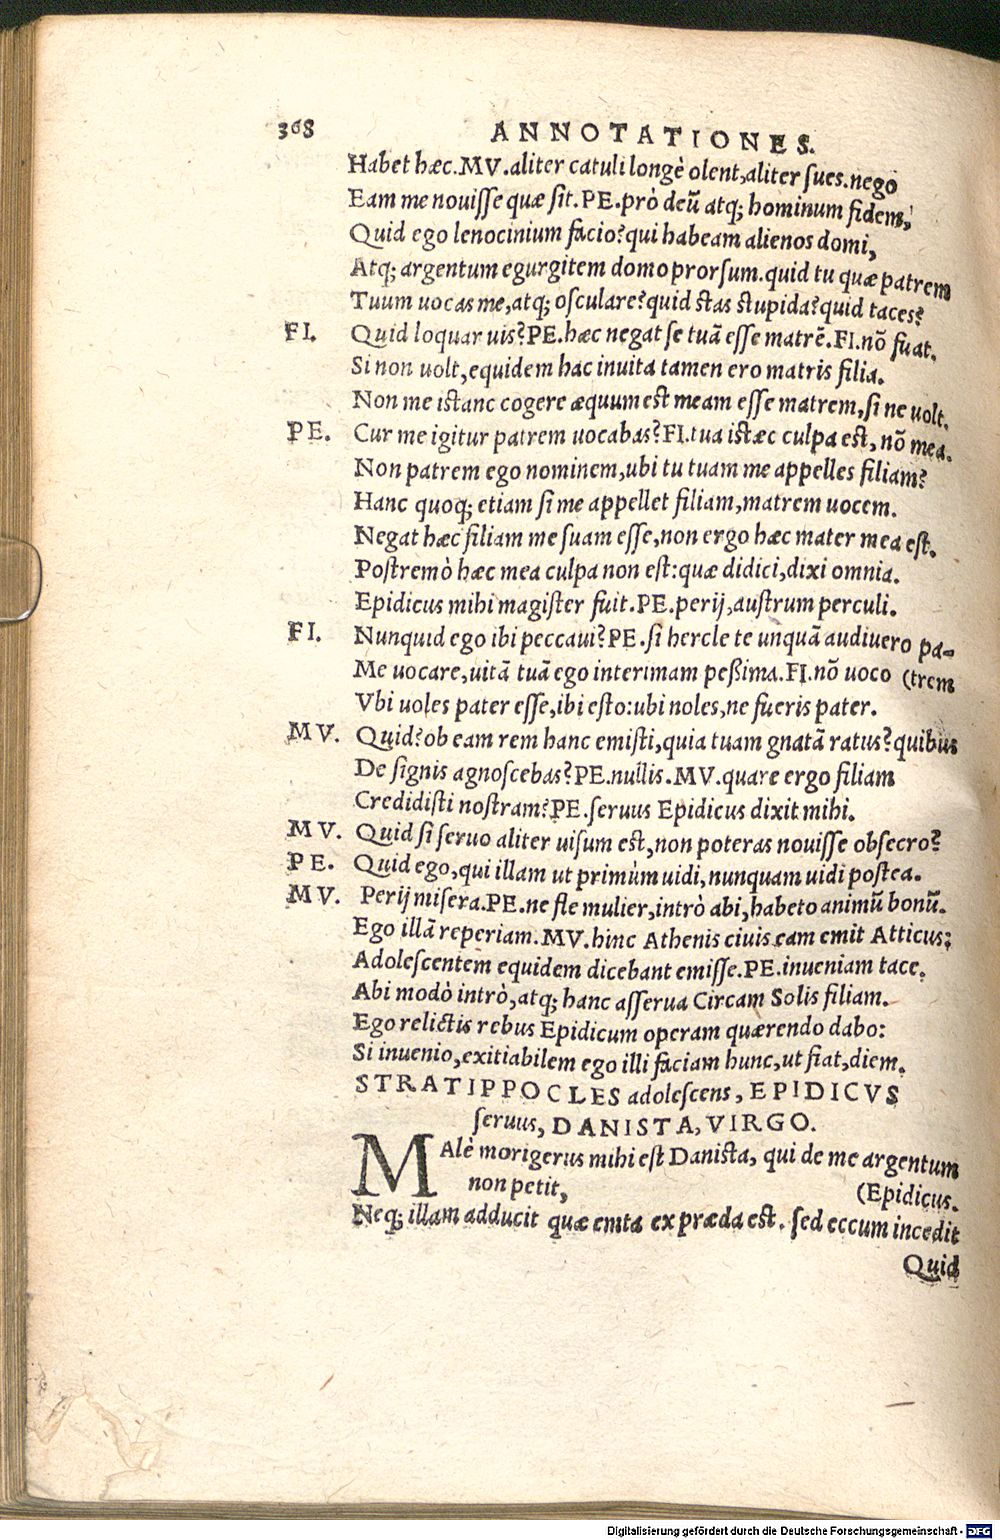 368 ANNOTATIONES.
Habet hæc. MV. aliter catuli longè olent, aliter sues. nego
Eam me nouisse quæ sit. PE. prò deũ atq; hominum fidem,
Quid ego lenocinium facio? qui habeam alienos domi,
Atq; argentum egurgitem domo prorsum. quid tu quæ patrem
Tuum uocas me, atq; oscularc? quid stas stupida? quid taces?
FI. Quid loquar uis? PE. hæc negat se tuã esse matrẽ. FI. nõ fuat.
Si non uolt, equidem hac inuita tamen ero matris filia.
Non me istanc cogere æquum est meam esse matrem, si ne uolt.
PE. Cur me igitur patrem uocabas? FI. tua istæc culpa est, nõ mea.
Non patrem ego nominem, ubi tu tuam me appelles filiam?
Hanc quoq; etiam si me appellet filiam, matrem uocem.
Negat hæc filiam me suam esse, non ergo hæc mater mea est.
Postremò hæc mea culpa non est: quæ didici, dixi omnia.
Epidicus mihi magister fuit. PE. perij, austrum perculi.
FI. Nunquid ego ibi peccaui? PE. si hercle te unquã audiuero pa-
Me uocare, uitã tuã ego interimam peßima. FI. nõ uoco (trem
Vbi uoles pater esse, ibi esto: ubi noles, ne fueris pater.
MV. Quid? ob eam rem hanc emisti, quia tuam gnatã ratus? quibus
De signis agnoscebas? PE. nullis. MV. quare ergo filiam
Credidisti nostram? PE. seruus Epidicus dixit mihi.
MV. Quid si seruo aliter uisum est, non poteras nouisse obsecro?
PE. Quid ego, qui illam ut primùm uidi, nunquam uidi postea.
MV. Perij misera. PE. ne fle mulier, intrò abi, habeto animũ bonũ.
Ego illã reperiam. MV. hinc Athenis ciuis eam emit Atticus;
Adolescentem equidem dicebant emisse. PE. inueniam tace.
Abi modò intrò, atq; hanc asserua Circam Solis filiam.
Ego relictis rebus Epidicum operam quærendo dabo:
Si inuenio, exitiabilem ego illi faciam hunc, ut fiat, diem.
STRATIPPOCLES adolescens, EPIDICVS
seruus, DANISTA, VIRGO.
MAlè morigerus mihi est Danista, qui de me argentum
non petit, (Epidicus.
Neq; illam adducit quæ emta ex præda est. sed eccum incedit
Quid
Digitalisierung gefördert durch die Deutsche Forschungsgemeinschaft - DFG